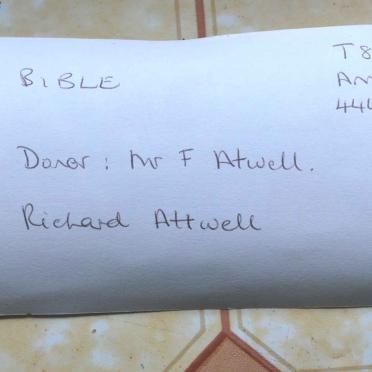 BIBLE
Donor: Mr F Atwell.
Richard Attwell
T8
An
444